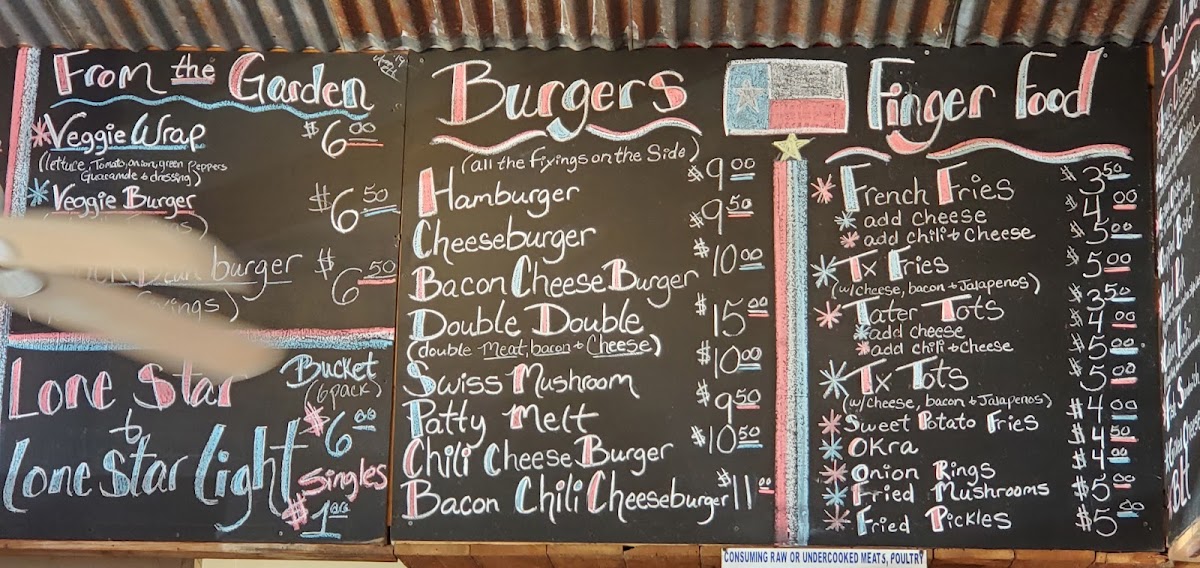 From the Garden
Veggie Wrap $6.00
(lettuce, Tomato, onion, green Peppers
Guacamole & dressing)
Veggie Burger $6.50
burger $6.50
Lone Star
&
Lone Star Light
Bucket
(6 pack)
$6.00
Singles
$1.00
Burgers
(all the Fixings on the Side)
Hamburger $9.00
Cheeseburger $9.50
Bacon Cheese Burger $10.00
Double Double $15.00
(double Meat, bacon & Cheese)
Swiss Mushroom $10.00
Patty Melt $9.50
Chili Cheese Burger $10.50
Bacon Chili Cheeseburger $11.00
Finger Food
French Fries $3.50
add cheese $4.00
add chili & Cheese $5.00
Tx Fries $5.00
(w/cheese, bacon & Jalapenos)
Tater Tots $3.50
add cheese $4.00
add chili & Cheese $5.00
Tx Tots $5.00
(w/cheese, bacon & Jalapenos)
Sweet Potato Fries $4.00
Okra $4.50
Onion Rings $4.00
Fried Mushrooms $5.00
Fried Pickles $5.00
CONSUMING RAW OR UNDERCOOKED MEATS, POULTRY